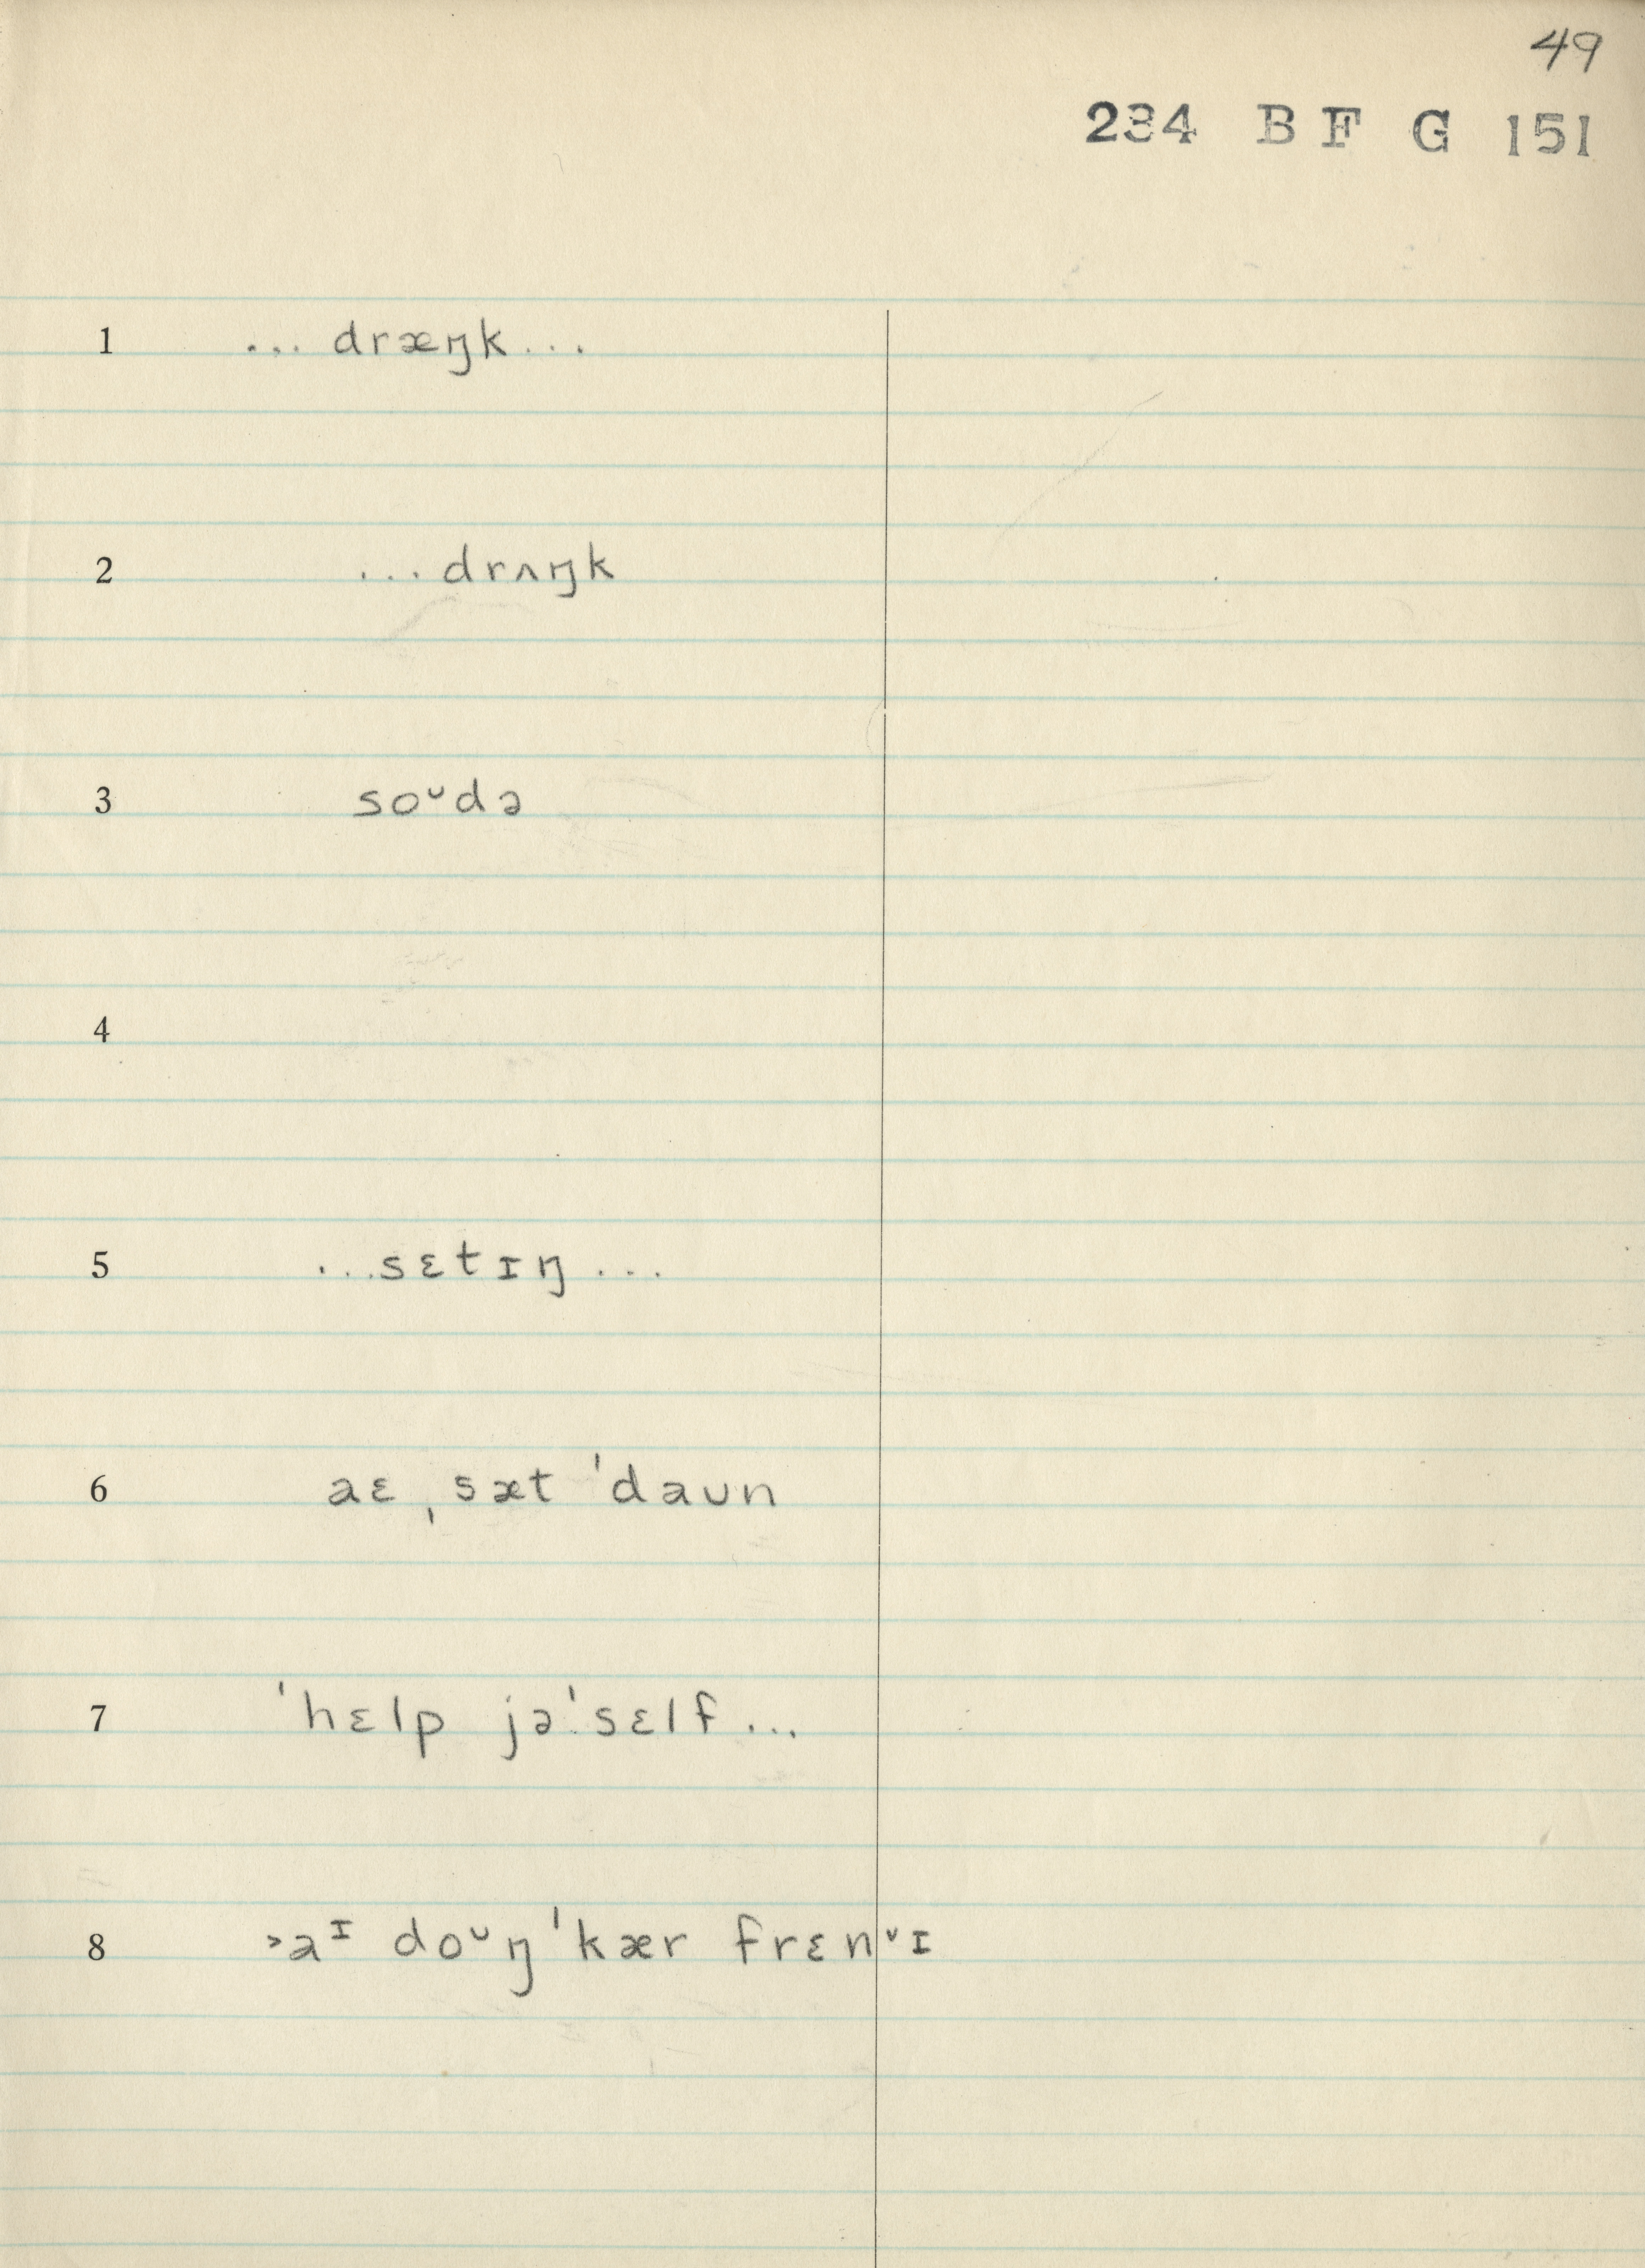 49
234 B F G 151
1 ... dræŋk ...
2 ... drʌŋk
3 soᴜdə
4
5 ...sɛtɪŋ ...
6 aɛ ˌsæt ˈdaᴜn
7 ˈhɛlp jəˈsɛlf ...
8 >aᶦ doᶸŋ ˈkær frɛnˇɪ